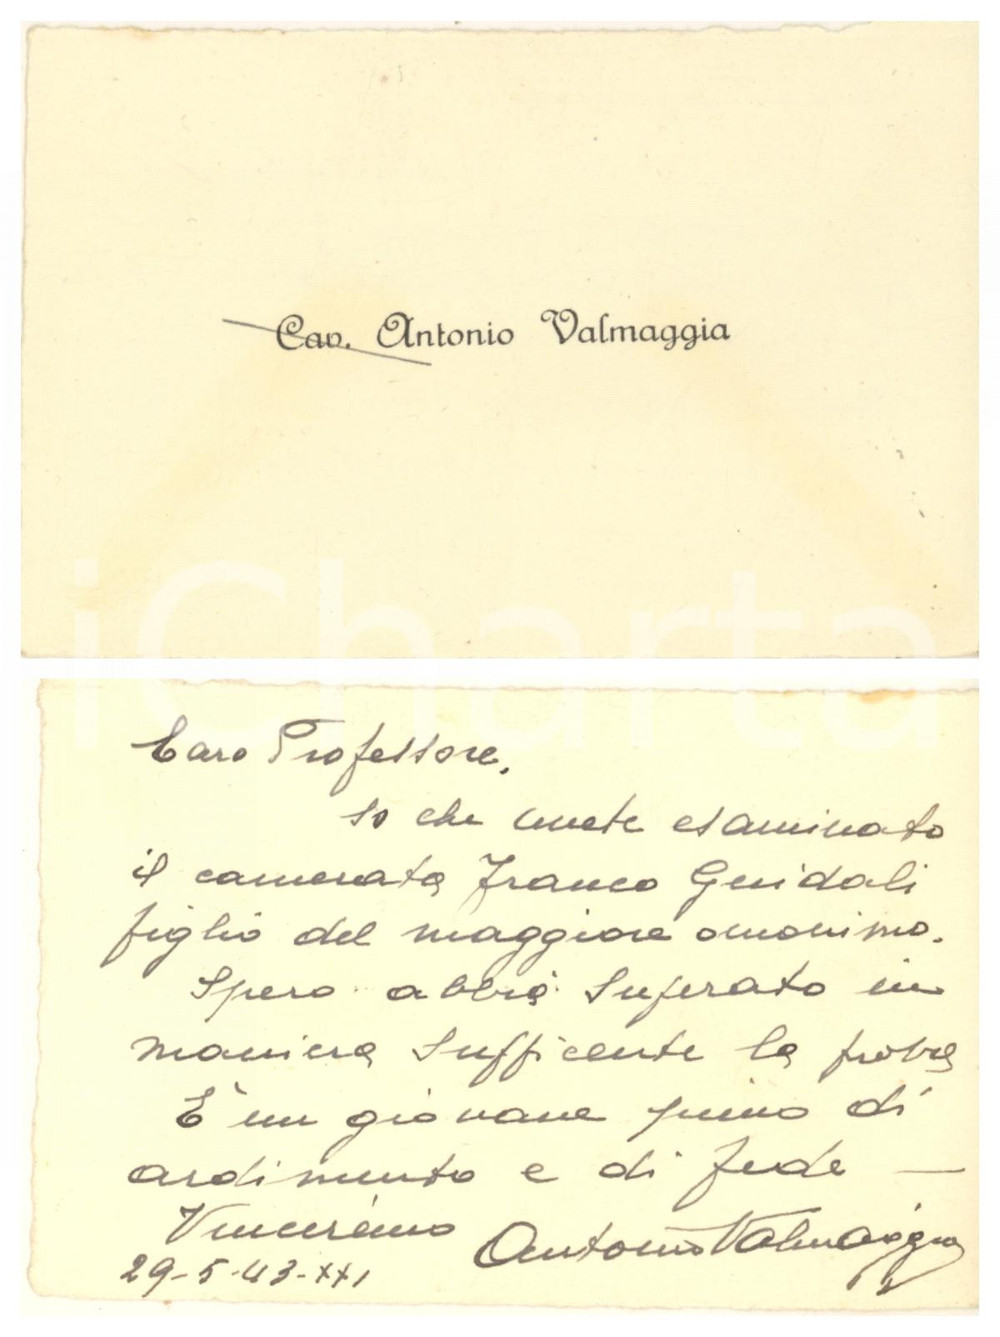 Cav. Antonio Valmaggia
iCharta
Caro Professore,
so che avete esaminato
il camerata Franco Guidali
figlio del maggiore omonimo.
Spero abbia superato in
maniera sufficente la prova
È un giovane pieno di
ardimento e di fede —
Vinceremo Antonio Valmaggia
29-5-43-XXI